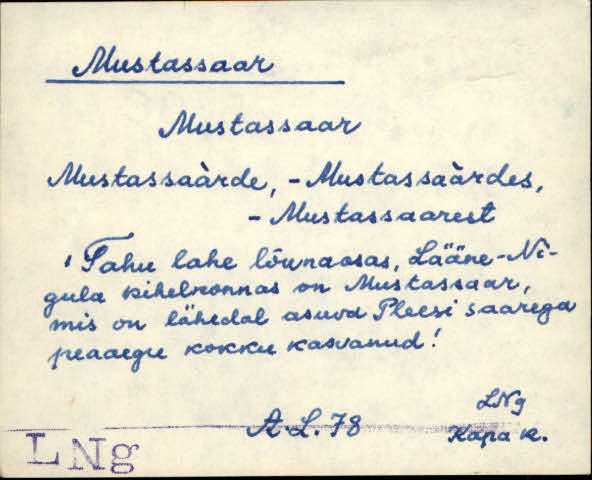 Mustassaar
Mustassaar
Mustassaàrde, - Mustassaàrdes,
- Mustassaarest
' Tahu lahe lõunaosas, Lääne-Ni-
gula kihelkonnas on Mustassaar,
mis on lähedal asuva Pleesi saarega
peaaegu kokku kasvanud!
LNg
A.L.78
Kapa k.
LNg